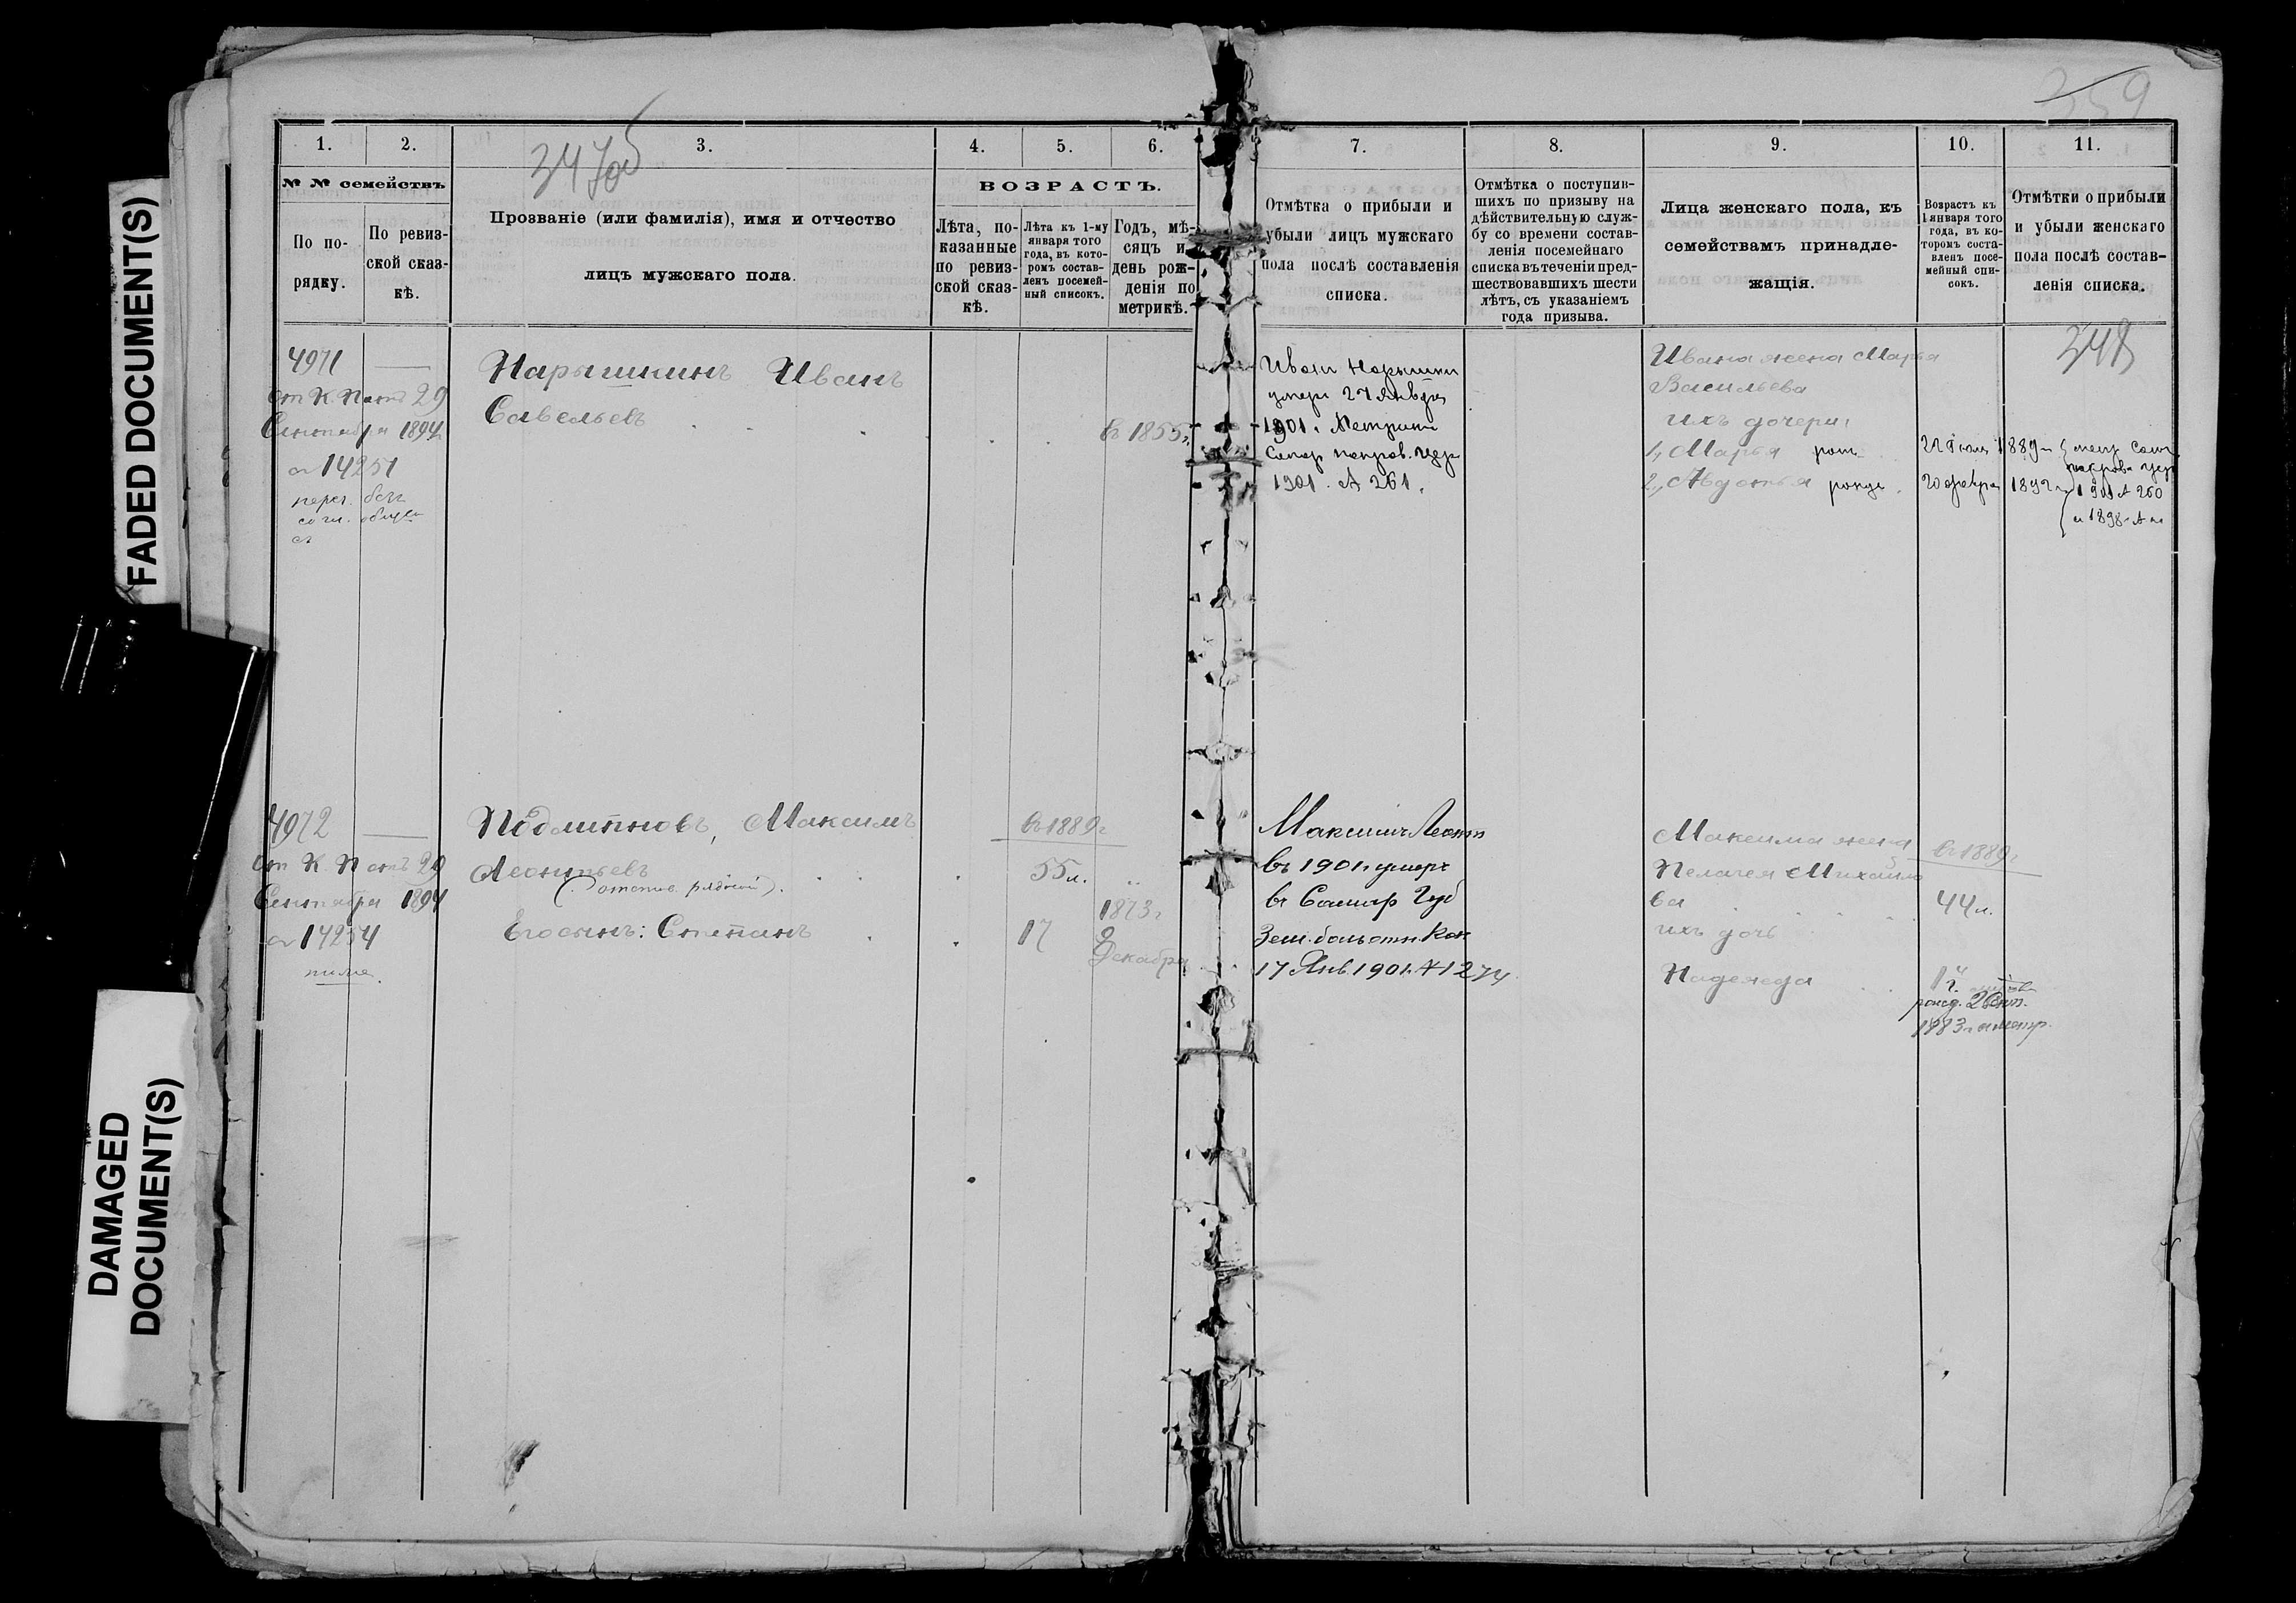 FADED DOCUMENT(S)
DAMAGED
DOCUMENT(S)
359
347 об
348
1.
2.
3.
4.
5.
6.
№ № семействъ
По по-
рядку.
По ревиз-
ской сказ-
кѣ.
Прозваніе (или фамилія), имя и отчество
лицъ мужскаго пола.
ВОЗРАСТЪ.
Лѣта, по-
казанные
по ревиз-
ской сказ-
кѣ.
Лѣта къ 1-му
января того
года, въ кото-
ромъ состав-
ленъ посемей-
ный списокъ.
Годъ, мѣ-
сяцъ и
день рож-
денія по
метрикѣ.
7.
8.
9.
10.
11.
Отмѣтка о прибыли и
убыли лицъ мужскаго
пола послѣ составленія
списка.
Отмѣтка о поступив-
шихъ по призыву на
дѣйствительную служ-
бу со времени состав-
ленія посемейнаго
списка въ теченіи пред-
шествовавшихъ шести
лѣтъ, съ указаніемъ
года призыва.
Лица женскаго пола, къ
семействамъ принадле-
жащія.
Возрастъ къ
1 января того
года, въ ко-
торомъ соста-
вленъ посе-
мейный спи-
сокъ.
Отмѣтки о прибыли
и убыли женскаго
пола послѣ состав-
ленія списка.
4971
от К. П. отъ 29
Сентября 1894
№ 14251
Нарышкинъ Иванъ
Савельевъ
въ 1855 г.
Иван Нарышкин
умеръ 27 Января
1901. Метрик
Самар покров. Цер
1901. № 261.
Ивана жена Марья
Васильева
ихъ дочери:
1, Марья рож
22 Іюля 1889 г.
2, Авдотья рожд.
20 февра 1892 г.
метр Сам.
покров цер
1901 № 260
и 1898 №
4972
от К. П. отъ 29
Сентября 1894
№ 14254
Подлипновъ, Максимъ
Леонтьевъ
(отстав. рядовой).
въ 1889 г
55 л.
Его сынъ: Степанъ
17
1873 г
9
Декабря
Максим Леонт
въ 1901 г умеръ
в Самар Губ
Зем. больстн.
17 Янв. 1901. № 1274.
Максима жена
Пелагея Михайло
ва
въ 1889 г
44 л.
ихъ дочь
Надежда
рожд. 2 Сент.
1883 г метр.